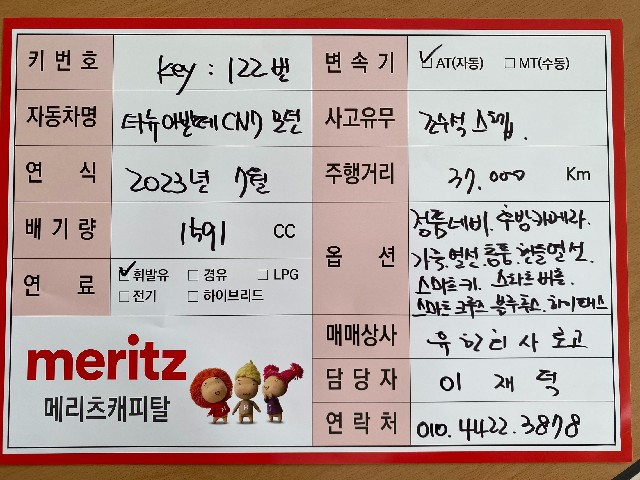 키 번호 key : 122번
변속기 ✓AT(자동) □MT(수동)
자동차명 더뉴아반떼CN7 모던
사고유무 조수석 스텝.
연 식 2023년 7월
주행거리 37.000 Km
배기량 1591 CC
옵 션 정품네비. 후방카메라.
가죽.열선.통풍.핸들열선.
스마트키. 스타트버튼.
스마트크루즈 블루투스. 하이패스
연 료 ✓휘발유 □경유 □LPG
□전기 □하이브리드
매매상사
담당자 이 재 덕
연락처 010.4422.3878
meritz
메리츠캐피탈